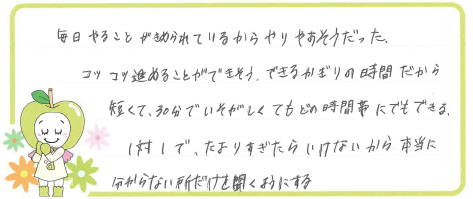 毎日やることが決められているからやりやすそうだった、
コツコツ進めることができそう、できるかぎりの時間だから
短くて、30分でいそがしくてもどの時間帯にでもできる、
1対1で、たよりすぎたらいけないから本当に
分からない所だけを聞くようにする